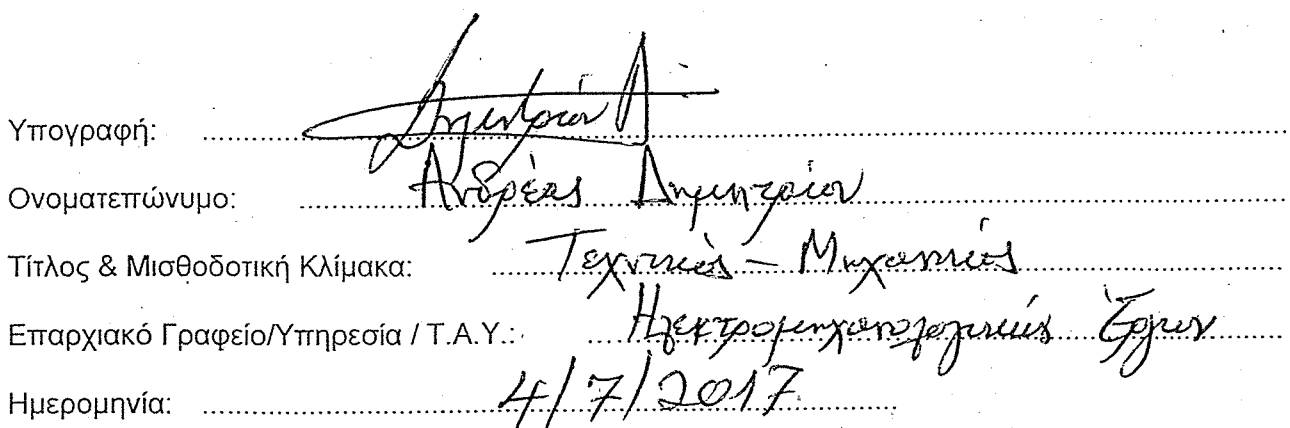 Υπογραφή: Δημητρίου Α
Ονοματεπώνυμο: Ανδρέας Δημητρίου
Τίτλος & Μισθοδοτική Κλίμακα: Τεχνικός - Μηχανικός
Επαρχιακό Γραφείο/Υπηρεσία / Τ.Α.Υ.: Ηλεκτρομηχανολογικών Έργων
Ημερομηνία: 4/7/2017